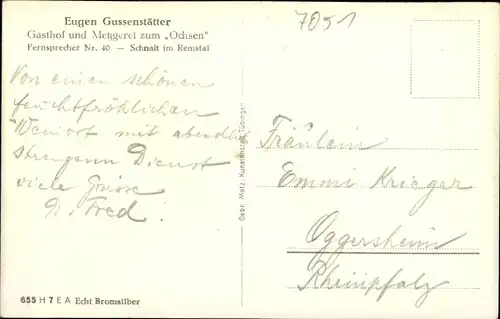 Eugen Gussenstätter
Gasthof und Metzgerei zum „Ochsen"
Fernsprecher Nr. 40 — Schnait im Remstal
7051
Von einen schönen
feuchtfröhlichen
Weinort mit abendlich
strengenn Dienst
viele Grüsse
D. Fred!
Gebr. Metz, Kunstanstalt, Tübingen
Fräulein
Emmi Krieger
Oggersheim
Rheinpfalz
655 H 7 E A Echt Bromsilber